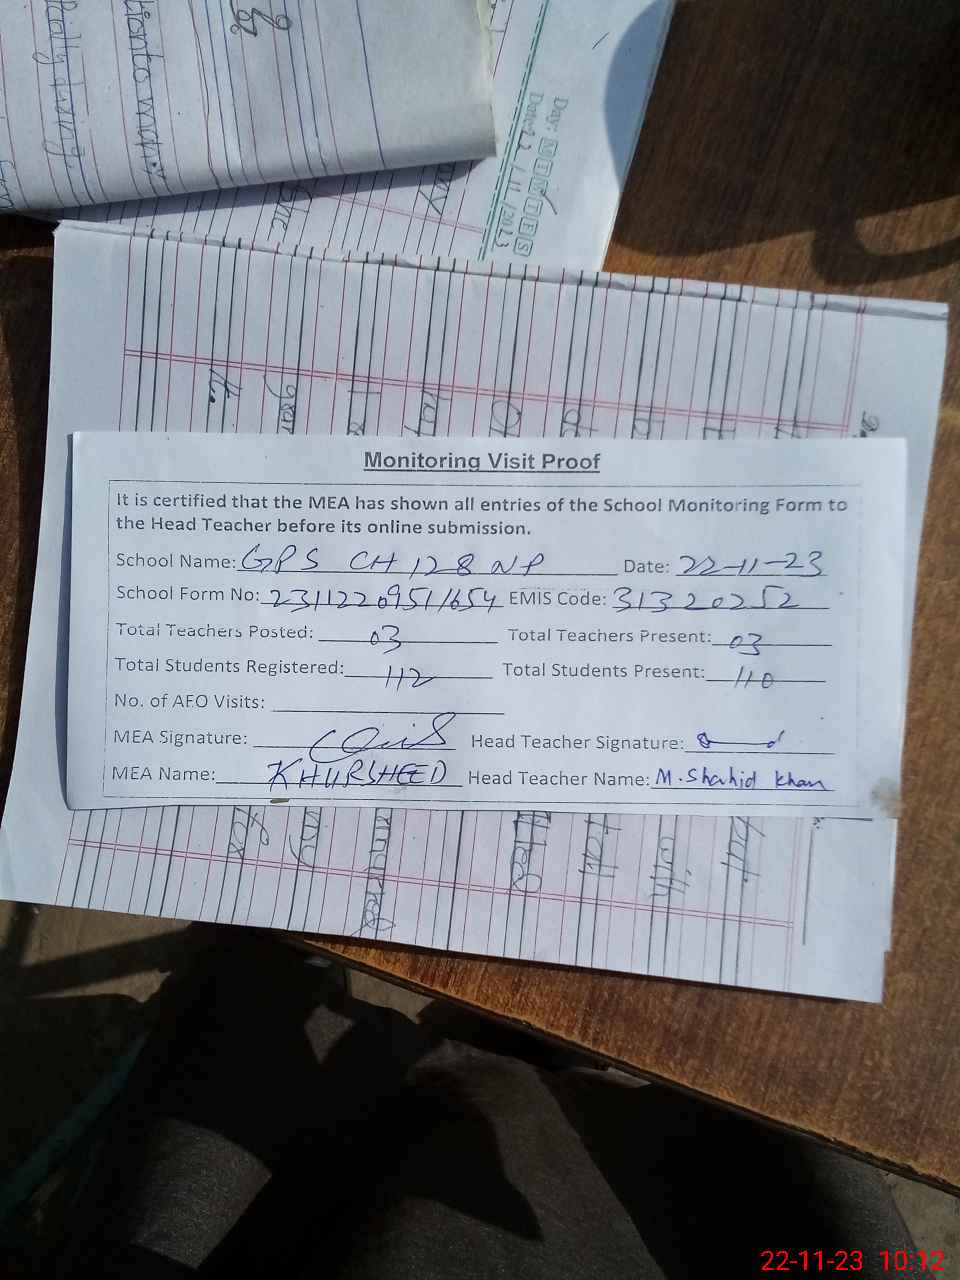 Day: M T W T F S
Date: 22/11/2023
Monitoring Visit Proof
It is certified that the MEA has shown all entries of the School Monitoring Form to
the Head Teacher before its online submission.
School Name: GPS CH 128 NP Date: 22-11-23
School Form No: 23112209511654 EMIS Code: 31320252
Total Teachers Posted: 03 Total Teachers Present: 03
Total Students Registered: 112 Total Students Present: 110
No. of AEO Visits:
MEA Signature: Head Teacher Signature:
MEA Name: KHURSHEED Head Teacher Name: M. Shahid Khan
with
22-11-23 10:12